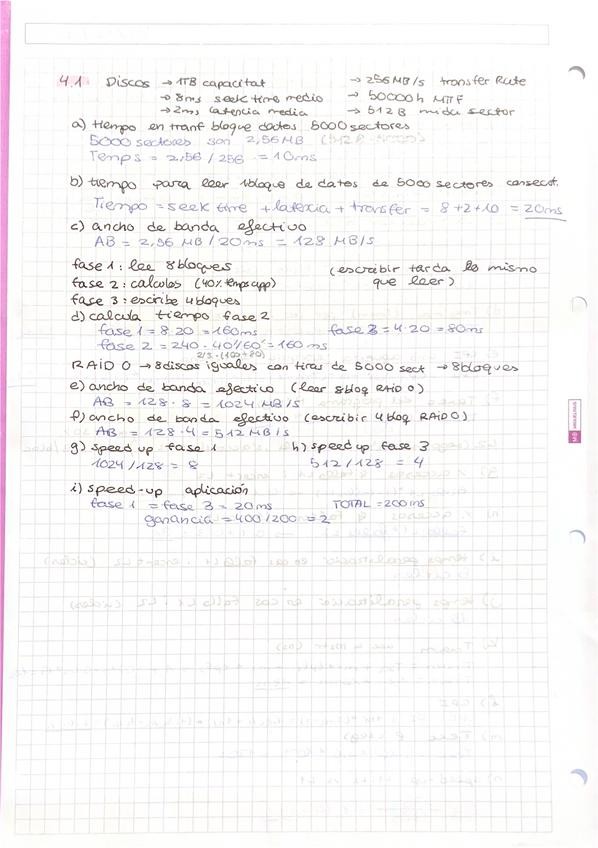 4.1 Discos → 1TB capacitat → 256 MB/s transfer Rate
→ 8ms seek time medio → 50000h MTTF
→ 2ms latencia media → 512B mida sector
a) tiempo en tranf bloque datos 5000 sectores
5000 sectores son 2,56 MB
Temps = 2,56 / 256 = 10ms
b) tiempo para leer 1 bloque de datos de 5000 sectores consecut.
Tiempo = seek time + latencia + transfer = 8 + 2 + 10 = 20ms
c) ancho de banda efectivo
AB = 2,56 MB / 20ms = 128 MB/s
fase 1: lee 8 bloques (escribir tarda lo mismo
fase 2: calculos (40% temps app) que leer)
fase 3: escribe 4 bloques
d) calcula tiempo fase 2
fase 1 = 8·20 = 160ms fase 3 = 4·20 = 80ms
fase 2 = 240·40%/60% = 160 ms
2/3·(160+80)
RAID 0 → 8 discos iguales con tiras de 5000 sect → 8 bloques
e) ancho de banda efectivo (leer 8 bloq RAID 0)
AB = 128·8 = 1024 MB/s
f) ancho de banda efectivo (escribir 4 bloq RAID 0)
AB = 128·4 = 512 MB/s
g) speed up fase 1 h) speed up fase 3
1024/128 = 8 512/128 = 4
i) speed-up aplicación
fase 1 = fase 3 = 20ms TOTAL = 200ms
ganancia = 400/200 = 2